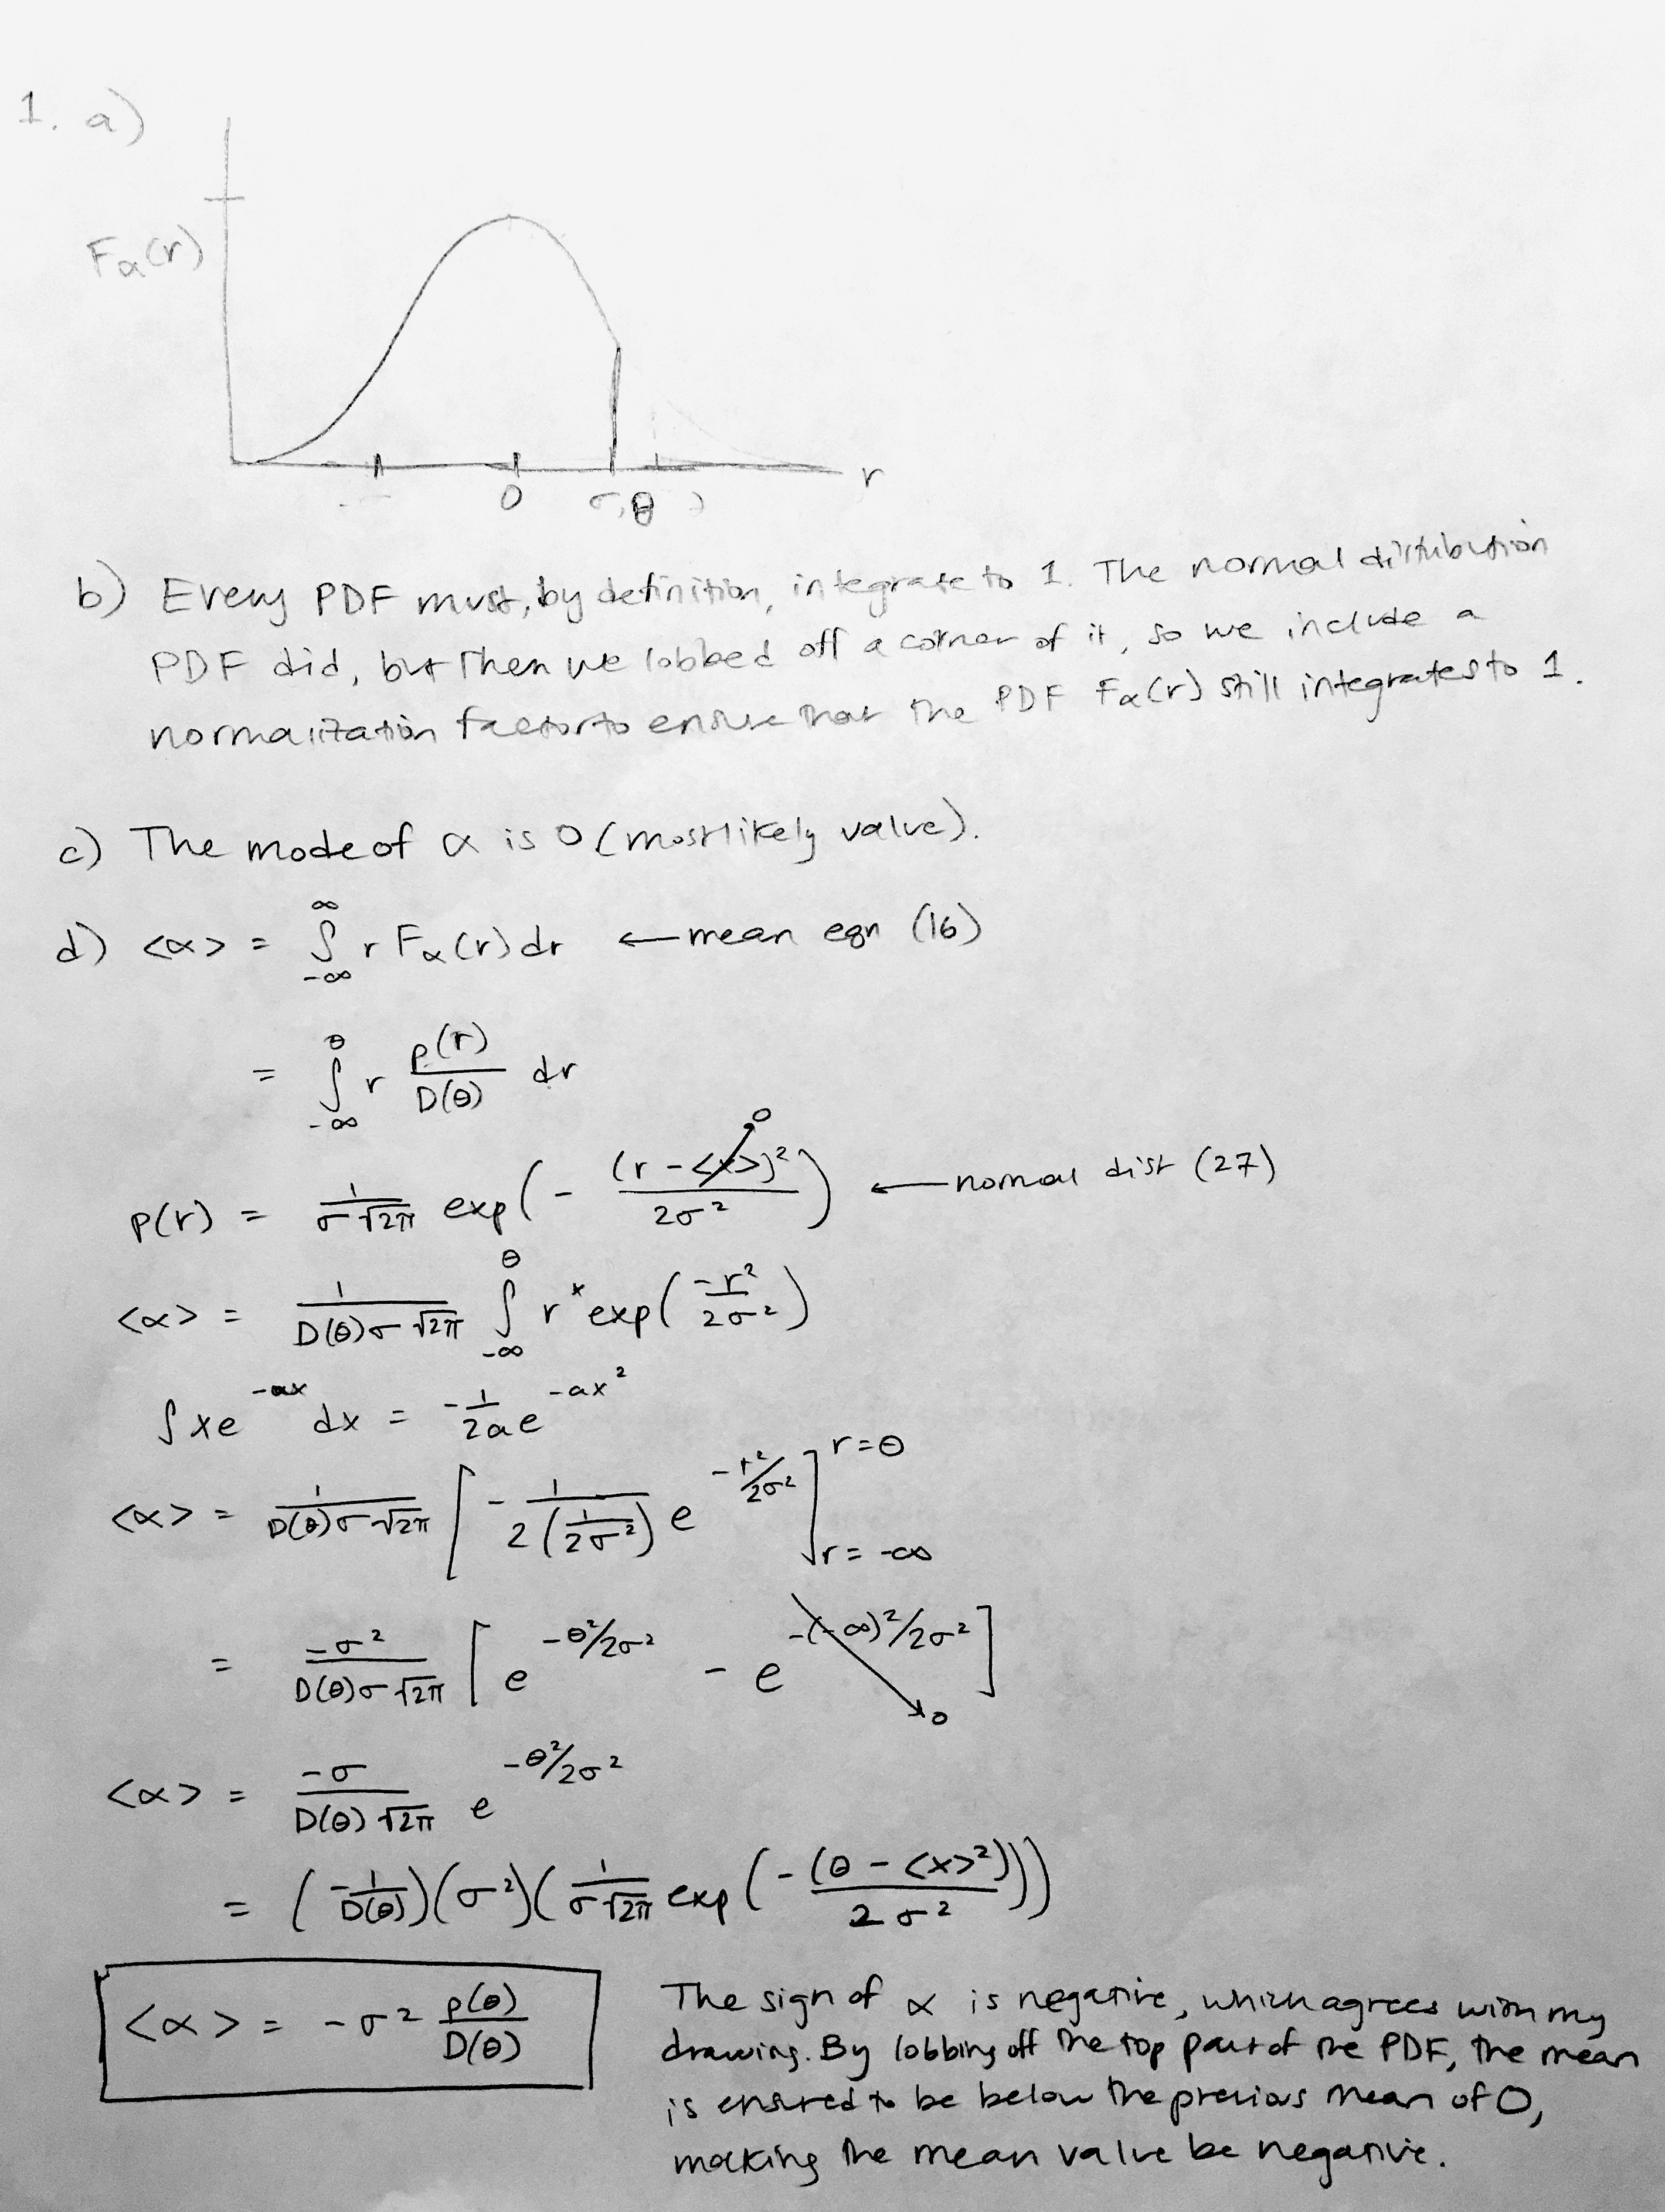 1. a)
Fα(r)
0 σ, θ r
b) Every PDF must, by definition, integrate to 1. The normal distribution
PDF did, but then we lobbed off a corner of it, so we include a
normalization factor to ensure that the PDF Fα(r) still integrates to 1.
c) The mode of α is 0 (most likely value).
d) <α> = ∫_{-∞}^{∞} r Fα(r) dr ← mean eqn (16)
= ∫_{-∞}^{θ} r p(r)/D(θ) dr
p(r) = 1/(σ√2π) exp(- (r - <x>)²/2σ²) ← normal dist (27)
0
<α> = 1/(D(θ)σ√2π) ∫_{-∞}^{θ} r * exp(-r²/2σ²)
∫ xe^{-ax} dx = -1/2a e^{-ax²}
<α> = 1/(D(θ)σ√2π) [ - 1/(2(1/2σ²)) e^{-r²/2σ²} ]_{r=-∞}^{r=θ}
= -σ²/(D(θ)σ√2π) [ e^{-θ²/2σ²} - e^{-(-∞)²/2σ²} ]
0
<α> = -σ/(D(θ)√2π) e^{-θ²/2σ²}
= (-1/D(θ))(σ²)(1/(σ√2π) exp(-(θ - <x>²)/2σ²)))
<α> = -σ² p(θ)/D(θ)
The sign of α is negative, which agrees with my
drawing. By lobbing off the top part of the PDF, the mean
is ensured to be below the previous mean of 0,
making the mean value be negative.